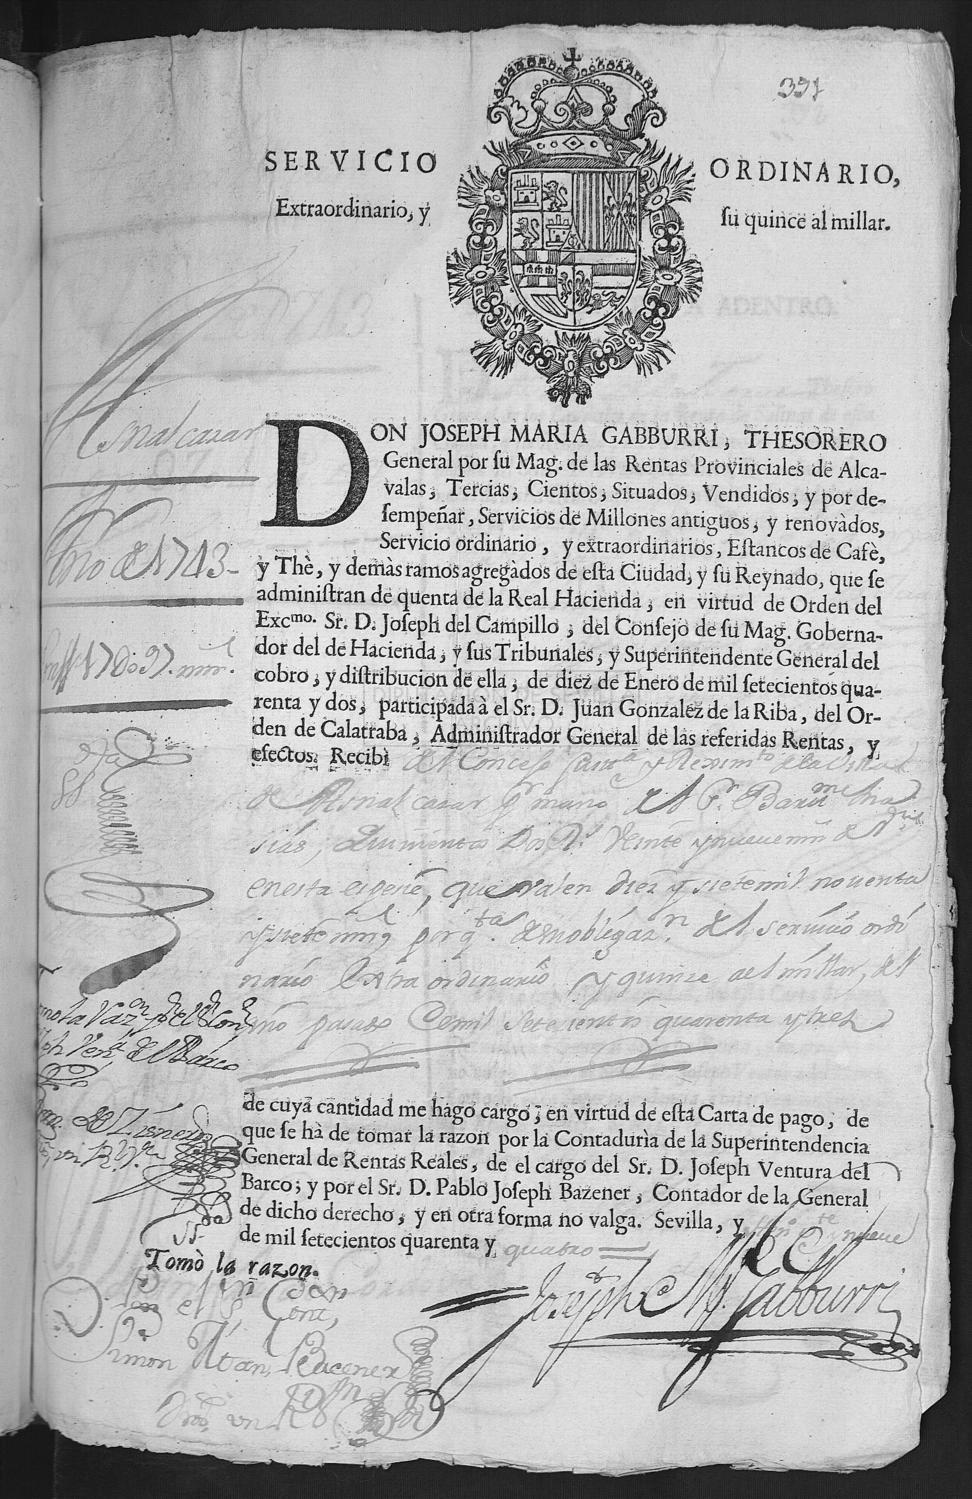 331
SERVICIO ORDINARIO,
Extraordinario, y su quince al millar.
Asnalcazar
Año de 1743
DON JOSEPH MARIA GABBURRI, THESORERO
General por su Mag. de las Rentas Provinciales de Alca-
valas, Tercias, Cientos, Situados, Vendidos, y por de-
sempeñar, Servicios de Millones antiguos, y renovàdos,
Servicio ordinario, y extraordinarios, Estancos de Cafè,
y Thè, y demàs ramos agregàdos de esta Ciudad, y su Reynado, que se
administran de quenta de la Real Hacienda, en virtud de Orden del
Excmo. Sr. D. Joseph del Campillo, del Consejo de su Mag. Goberna-
dor del de Hacienda, y sus Tribunales, y Superintendente General del
cobro, y distribucion de ella, de diez de Enero de mil setecientos qua-
renta y dos, participada à el Sr. D. Juan Gonzalez de la Riba, del Or-
den de Calatraba, Administrador General de las referidas Rentas, y
efectos. Recibì del Concejo y de la Villa
de Asnalcazar por mano de
quinientos Veinte y nueve
en esta especie, que valen diez y siete mil noventa
y siete del servicio ordi
nario extraordinario y quinze al millar, del
año pasado de mil setecientos quarenta y tres
de cuya cantidad me hago cargo; en virtud de esta Carta de pago, de
que se hà de tomar la razon por la Contadurìa de la Superintendencia
General de Rentas Reales, de el cargo del Sr. D. Joseph Ventura del
Barco; y por el Sr. D. Pablo Joseph Bazener, Contador de la General
de dicho derecho, y en otra forma no valga. Sevilla, y nueve
de mil setecientos quarenta y quatro
Tomò la razon.
Joseph M. Gabburri
Simon Bacener